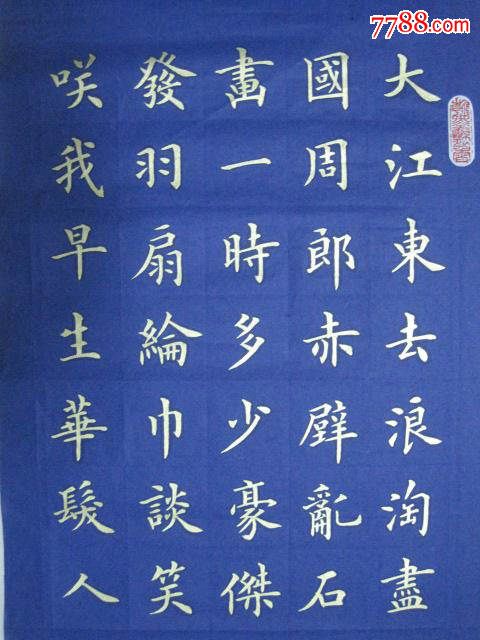 大江東去浪淘盡
國周郎赤壁亂石
畫一時多少豪傑
發羽扇綸巾談笑
咲我早生華髮人
7788.com